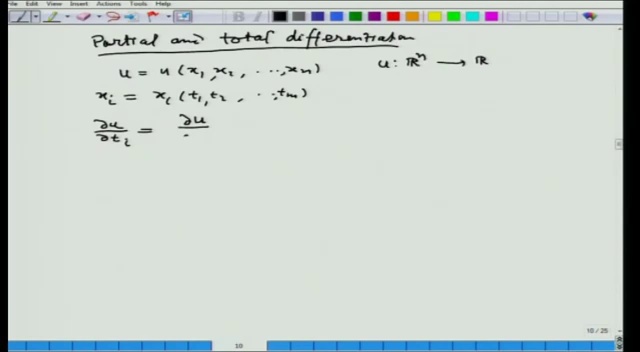 File Edit View Insert Actions Tools Help
Partial and total differentiation
u = u (x₁, x₂, ..., xₙ) u: ℝⁿ → ℝ
xᵢ = xᵢ (t₁, t₂, ..., tₘ)
∂u/∂tᵢ = ∂u/
10 / 25
10